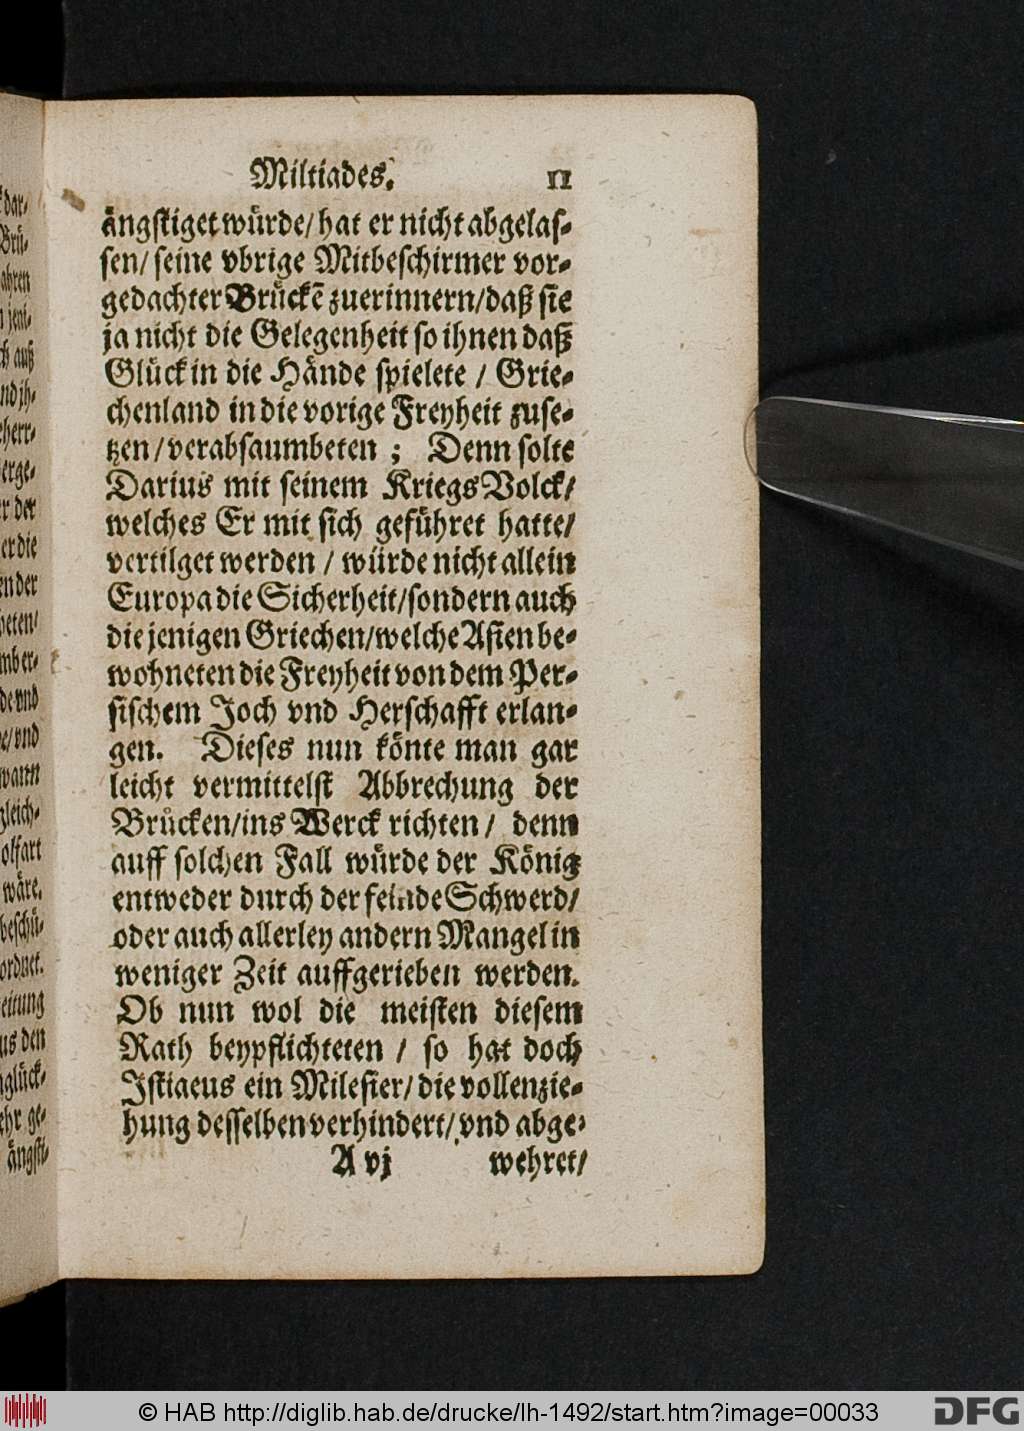 Miltiades. 11
ängstiget würde/ hat er nicht abgelas-
sen/ seine vbrige Mitbeschirmer vor-
gedachter Brückē zuerinnern/ daß sie
ja nicht die Gelegenheit so ihnen daß
Glück in die Hände spielete / Grie-
chenland in die vorige Freyheit zuse-
tzen/ verabsaumbeten ; Denn solte
Darius mit seinem Kriegs Volck/
welches Er mit sich geführet hatte/
vertilget werden / würde nicht allein
Europa die Sicherheit/ sondern auch
die jenigen Griechen/ welche Asien be-
wohneten die Freyheit von dem Per-
sischem Joch vnd Herschafft erlan-
gen. Dieses nun könte man gar
leicht vermittelst Abbrechung der
Brücken/ ins Werck richten / denn
auff solchen Fall würde der König
entweder durch der feinde Schwerd/
oder auch allerley andern Mangel in
weniger Zeit auffgerieben werden.
Ob nun wol die meisten diesem
Rath beypflichteten / so hat doch
Istiaeus ein Milesier/ die vollenzie-
hung desselben verhindert/ vnd abge-
A vj wehret/
dar-
Brü-
ahren
jeni-
auß
nd jh-
herr-
erge-
r der
er die
en der
beten/
mber-
de vnd
e/ vnd
wann
gleich-
olfart
wäre.
beschü-
ordnet.
eitung
us den
glück-
ehr ge-
ängsti-
© HAB http://diglib.hab.de/drucke/lh-1492/start.htm?image=00033
DFG